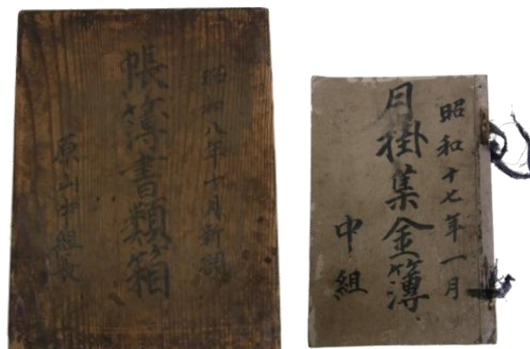 昭和八年十月新調
帳簿書類箱
原山中組長
昭和十七年一月
月掛集金簿
中組